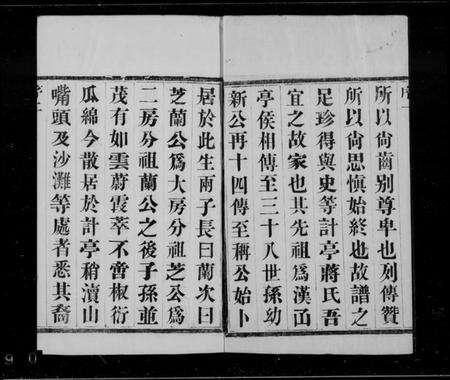 所以尙齒別尊卑也列傳贊
所以尙思愼始終也故譜之
足珍得與史等計亭蔣氏吾
宜之故家也其先祖爲漢函
亭侯相傳至三十八世孫幼
新公再十四傳至稱公始卜
居於此生兩子長曰蘭次曰
芝蘭公爲大房分祖芝公爲
二房分祖蘭公之後子孫並
茂有如雲蔚霞萃不啻椒衍
瓜綿今散居於計亭稍瀆山
嘴頭及沙灘等處者悉其裔